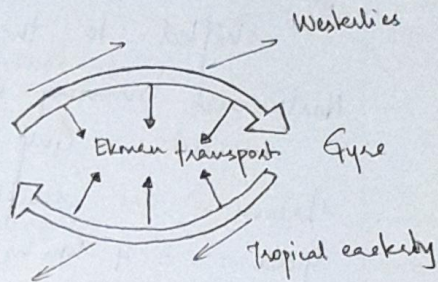 Westerlies
Ekman transport
Gyre
Tropical easterly